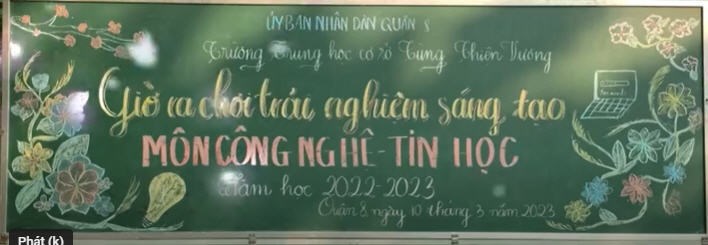 ỦY BAN NHÂN DÂN QUẬN 8
Trường Trung học cơ sở Tùng Thiện Vương
Giờ ra chơi trải nghiệm sáng tạo
MÔN CÔNG NGHỆ - TIN HỌC
Năm học 2022-2023
Quận 8, ngày 10 tháng 3 năm 2023
Phát (k)